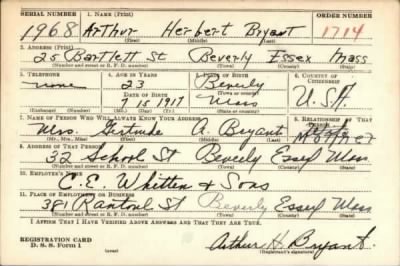 SERIAL NUMBER 1. NAME (Print) ORDER NUMBER
1968 Arthur Herbert Bryant 1714
(First) (Middle) (Last)
2. ADDRESS (Print)
25 Bartlett St Beverly Essex Mass
(Number and street or R. F. D. number) (Town) (County) (State)
3. TELEPHONE 4. AGE IN YEARS 5. PLACE OF BIRTH 6. COUNTRY OF CITIZENSHIP
none 23 Beverly U.S.A.
DATE OF BIRTH (Town or county)
7 15 1917 Mass
(Exchange) (Number) (Mo.) (Day) (Yr.) (State or country)
7. NAME OF PERSON WHO WILL ALWAYS KNOW YOUR ADDRESS 8. RELATIONSHIP OF THAT PERSON
Mrs. Gertrude A. Bryant Mother
(Mr., Mrs., Miss) (First) (Middle) (Last)
9. ADDRESS OF THAT PERSON
32 School St Beverly Essex Mass
(Number and street or R. F. D. number) (Town) (County) (State)
10. EMPLOYER'S NAME
C. E. Whitten & Sons
11. PLACE OF EMPLOYMENT OR BUSINESS
381 Rantoul St Beverly Essex Mass
(Number and street or R. F. D. number) (Town) (County) (State)
I AFFIRM THAT I HAVE VERIFIED ABOVE ANSWERS AND THAT THEY ARE TRUE.
REGISTRATION CARD
D. S. S. Form 1 (over) Arthur H. Bryant.